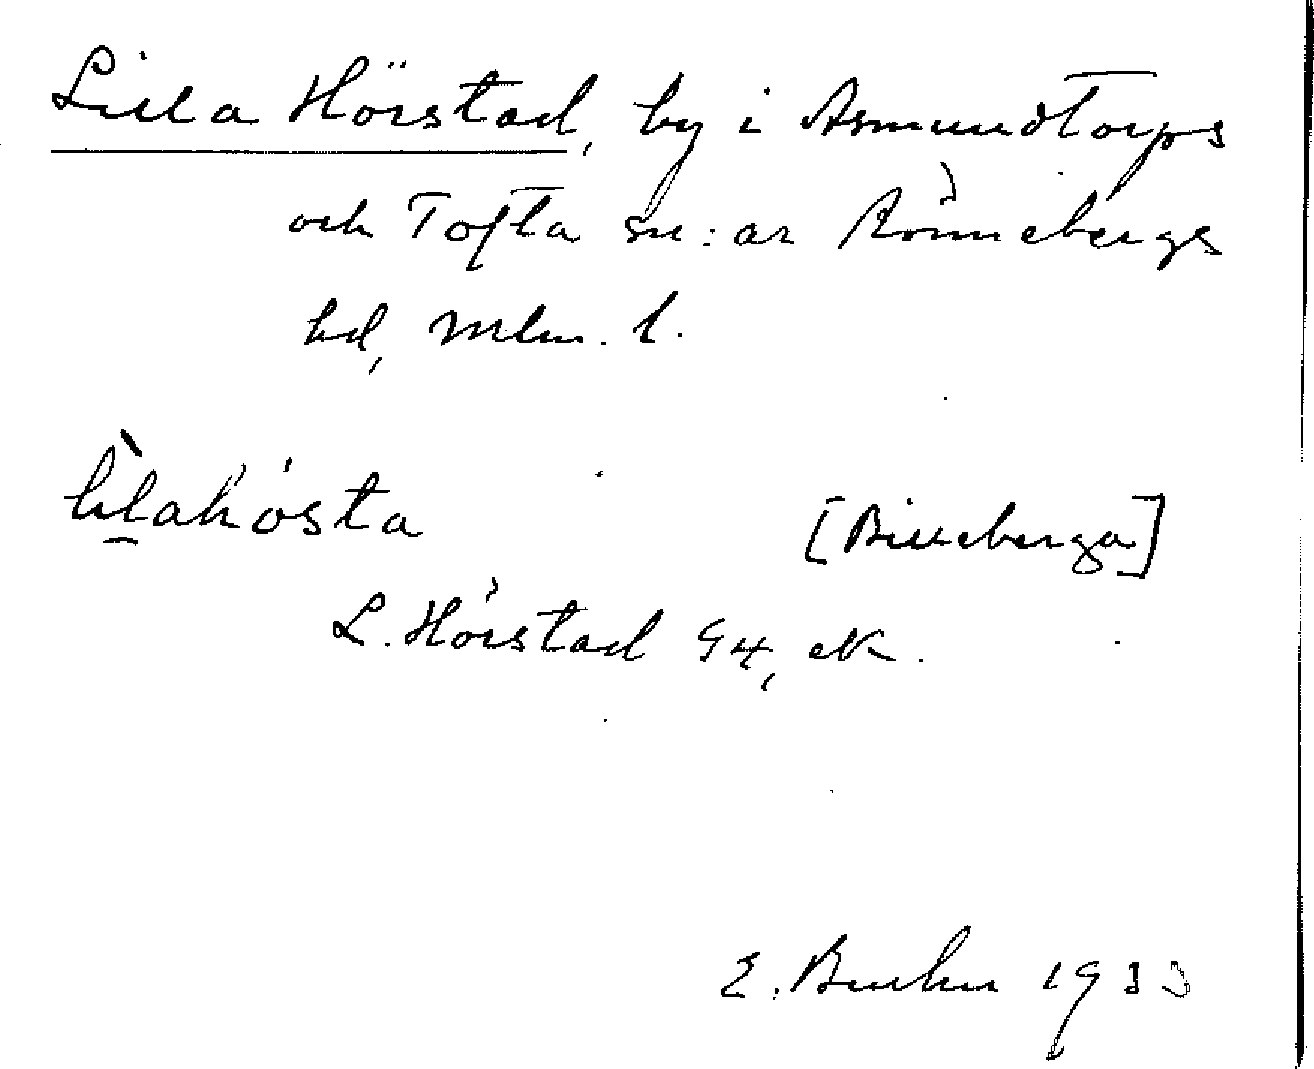 Lilla Hörstad, by i Asmundtorps
och Tofta sn:ar Rönnebergs
hd, Mlm. l.
lìlahósta [Billeberga]
L. Hörstad 94, ek.
E. Bruhn 1933